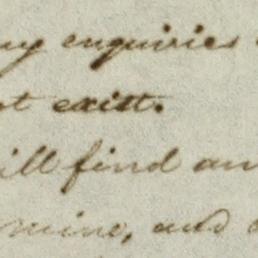 my enquiries
not exist.
will find an
mine, and